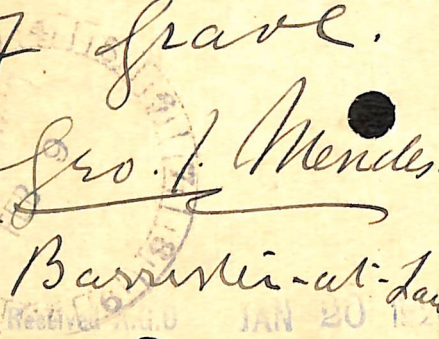 grave.
Geo. J. Mendes
Barrister-at-Law
Received R.G.O JAN 20